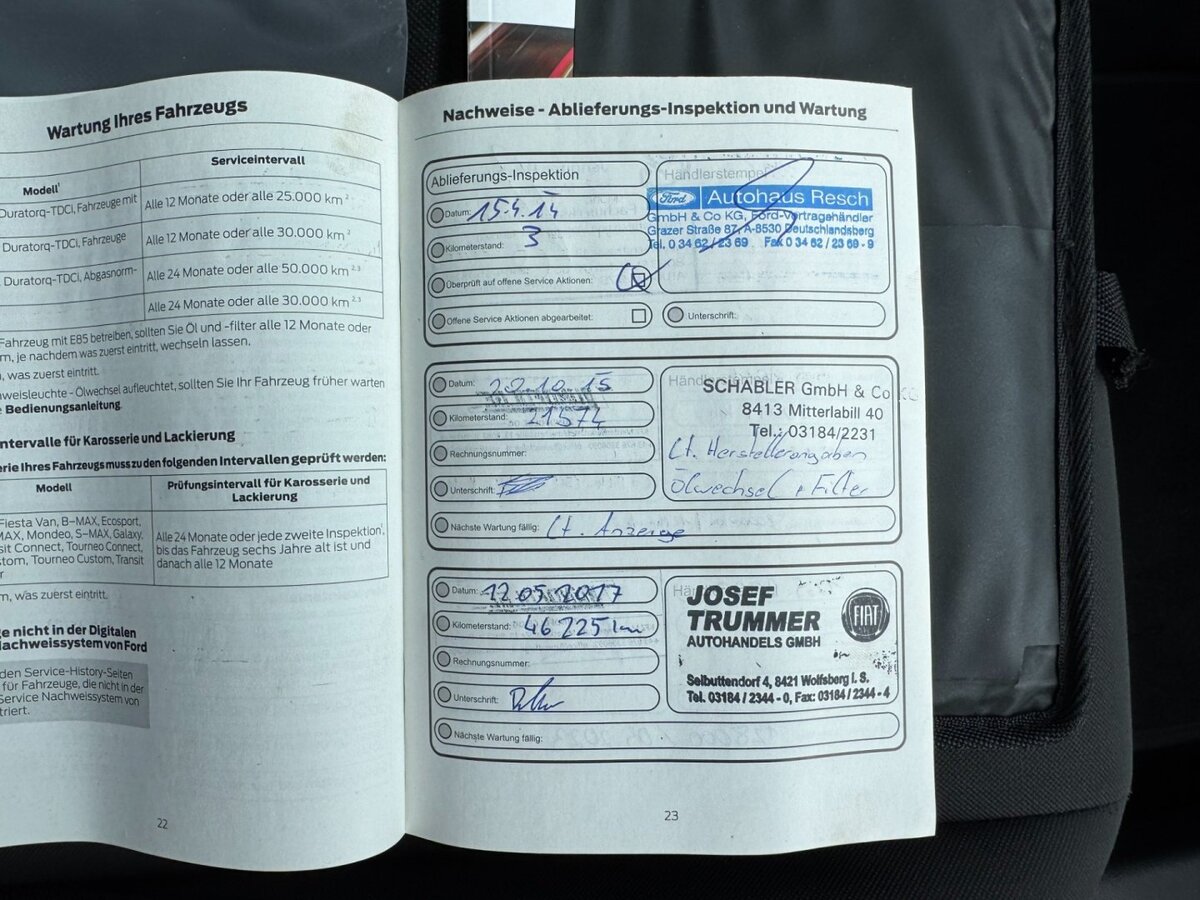 Wartung Ihres Fahrzeugs
Modell¹
Serviceintervall
Duratorq-TDCi, Fahrzeuge mit
Alle 12 Monate oder alle 25.000 km ²
Duratorq-TDCi, Fahrzeuge
Alle 12 Monate oder alle 30.000 km ²
Duratorq-TDCi, Abgasnorm-
Alle 24 Monate oder alle 50.000 km ²,³
Alle 24 Monate oder alle 30.000 km ²,³
Fahrzeug mit E85 betreiben, sollten Sie Öl und -filter alle 12 Monate oder
m, je nachdem was zuerst eintritt, wechseln lassen.
, was zuerst eintritt.
nweisleuchte - Ölwechsel aufleuchtet, sollten Sie Ihr Fahrzeug früher warten
e Bedienungsanleitung.
ntervalle für Karosserie und Lackierung
erie Ihres Fahrzeugs muss zu den folgenden Intervallen geprüft werden:
Modell
Prüfungsintervall für Karosserie und
Lackierung
Fiesta Van, B-MAX, Ecosport,
MAX, Mondeo, S-MAX, Galaxy,
sit Connect, Tourneo Connect,
stom, Tourneo Custom, Transit
r
Alle 24 Monate oder jede zweite Inspektion¹,
bis das Fahrzeug sechs Jahre alt ist und
danach alle 12 Monate
m, was zuerst eintritt.
ge nicht in der Digitalen
Nachweissystem von Ford
den Service-History-Seiten
für Fahrzeuge, die nicht in der
Service Nachweissystem von
triert.
22
Nachweise - Ablieferungs-Inspektion und Wartung
Ablieferungs-Inspektion
Datum: 15.4.14
Kilometerstand: 3
Überprüft auf offene Service Aktionen:
Offene Service Aktionen abgearbeitet:
Händlerstempel
Ford Autohaus Resch
GmbH & Co KG, Ford-Vertragshändler
Grazer Straße 87, A-8530 Deutschlandsberg
Tel. 0 34 62 / 23 69 Fax 0 34 62 / 23 69 - 9
Unterschrift:
Datum: 20.10.15
Kilometerstand: 21574
Rechnungsnummer:
Unterschrift:
Nächste Wartung fällig: Lt. Anzeige
SCHABLER GmbH & Co KG
8413 Mitterlabill 40
Tel.: 03184/2231
Lt. Herstellerangaben
Ölwechsel + Filter
Datum: 12.05.2017
Kilometerstand: 46225 km
Rechnungsnummer:
Unterschrift:
Nächste Wartung fällig:
JOSEF
TRUMMER
AUTOHANDELS GMBH
FIAT
Seibuttendorf 4, 8421 Wolfsberg i. S.
Tel. 03184 / 2344 - 0, Fax: 03184 / 2344 - 4
23